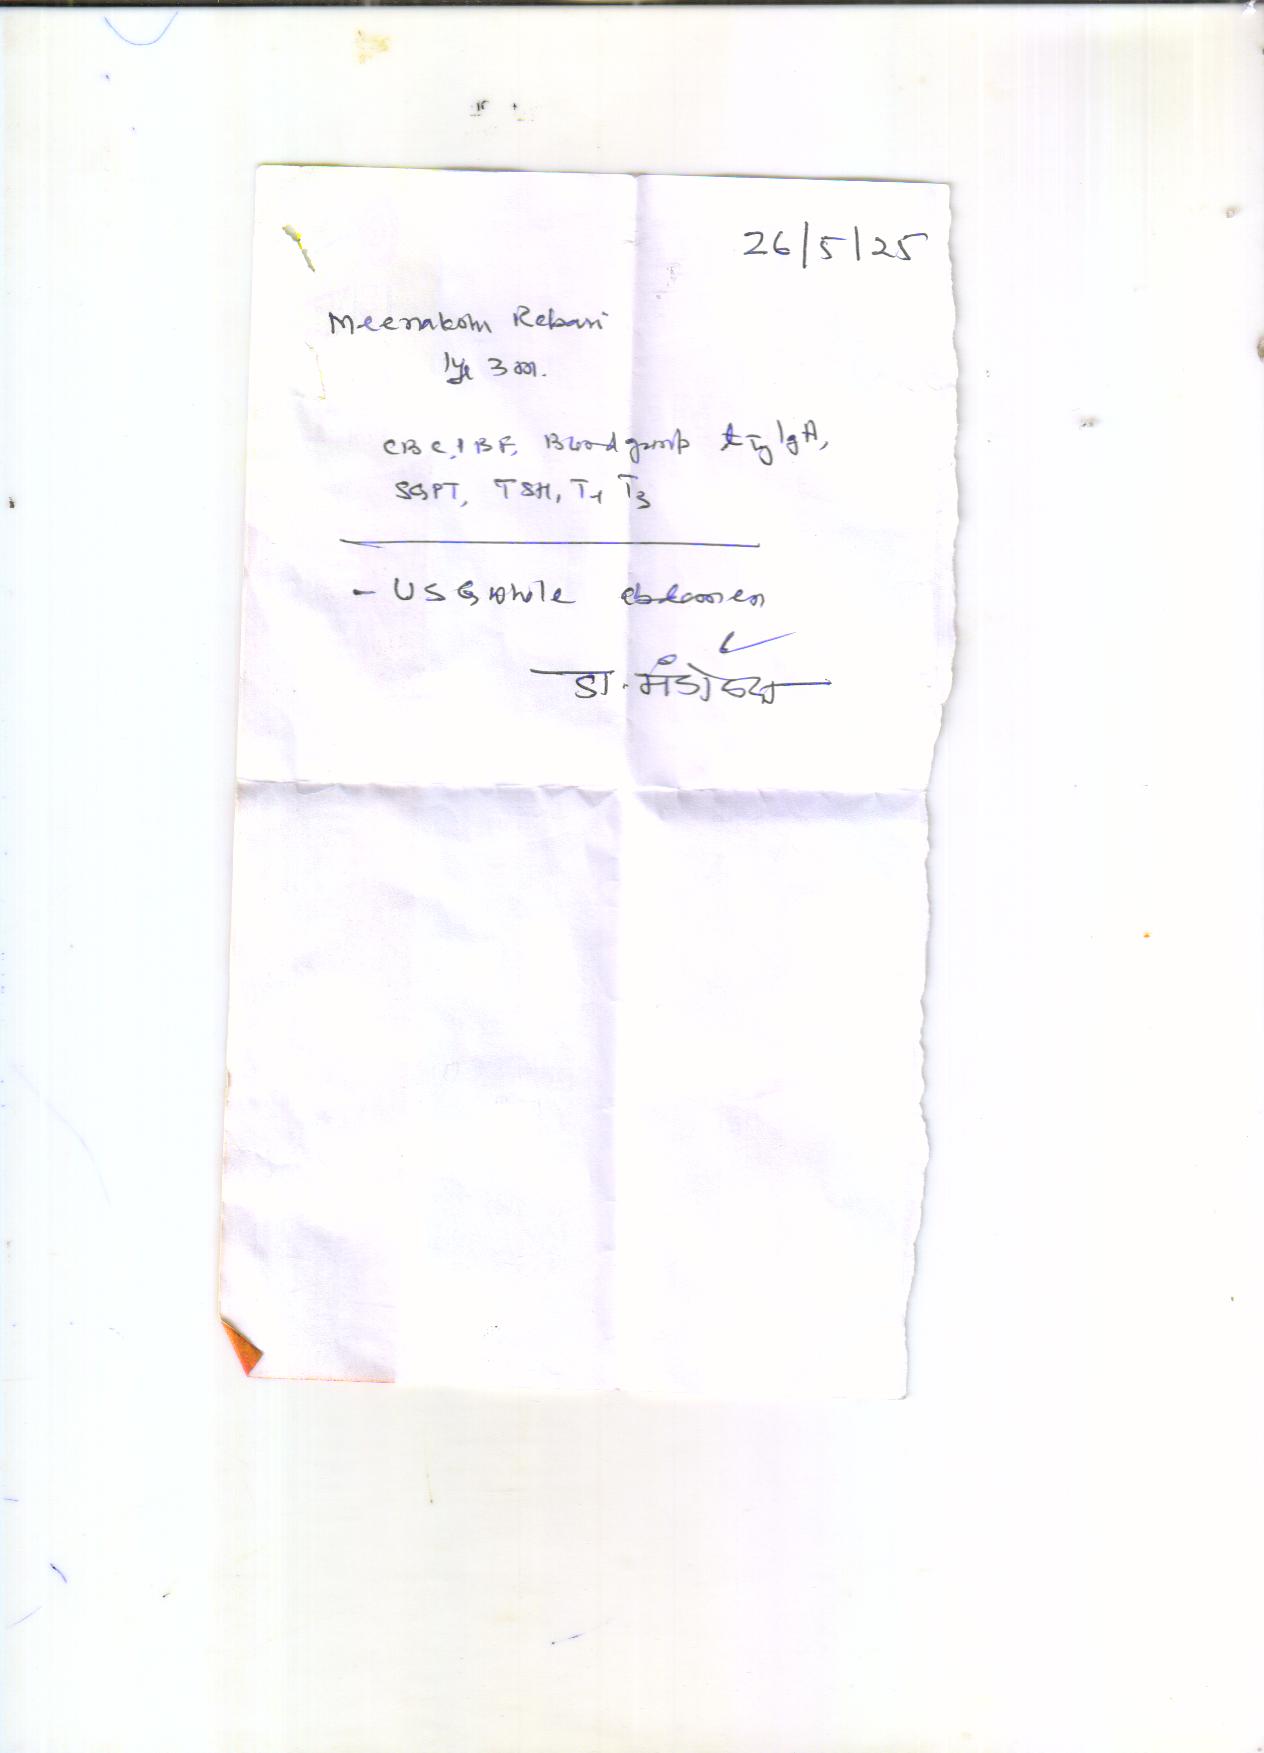 26/5/25
Meenakshi Rebari
1yr 3m.
CBC, PBF, Blood group tTg IgA,
SGPT, TSH, T4 T3
- USG whole abdomen
डा. मंडोवरा